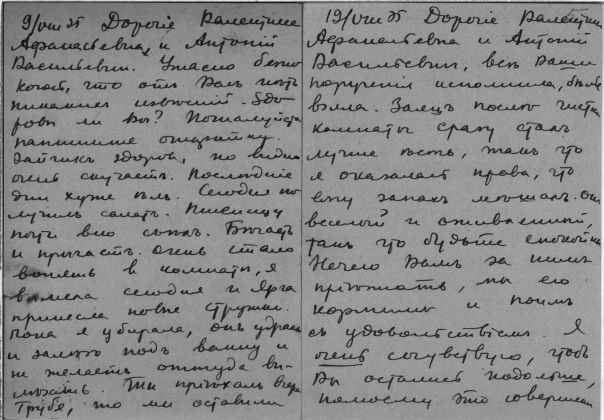 9/VIII 35 Дорогiе Валентина
Афанасьевна и Антонiй
Васильевич. Ужасно безпо
коюсь, что отъ Васъ нѣтъ
никакихъ извѣстiй. Здо
ровы ли Вы? Пожалуйста
напишите открытку.
Зайчикъ здоровъ, но видно
очень скучаетъ. Последнiе
дни хуже ѣлъ. Сегодня по
лучилъ салатъ. Пшеницу
почти всю съѣлъ. Бѣгаетъ
и прыгаетъ. Очень стало
вонять в комнатѣ, я
вымела сегодня и Ярга
принесла новые стружки.
Пока я убирала, онъ удралъ
и залѣзъ подъ ванну и
не желаетъ оттуда вы-
лѣзать. прiѣхалъ вчера
что ли оставили
19/VIII 35 Дорогiе Валентина
Афанасьевна и Антонiй
Васильевич, всѣ Ваши
порученiя исполнила,
взяла. Заецъ послѣ чистки
комнаты сразу сталъ
лучше ѣсть, такъ что
я оказалась права, что
ему запахъ мѣшалъ. Онъ
веселый и оживленный,
такъ что будьте спокойны
Нечего Вамъ за нимъ
прiѣзжать, мы его
кормимъ и поимъ
съ удовольствiемъ. Я
очень сочувствую, чтобъ
Вы остались подольше,
помоему это совершенно